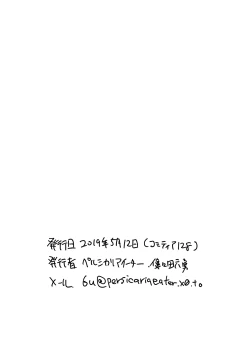 発行日 2019年5月12日（コミティア128）
発行者 ペルシカリアイーター 僕の田六勇
メール 6u@persicariaeater.x0.to